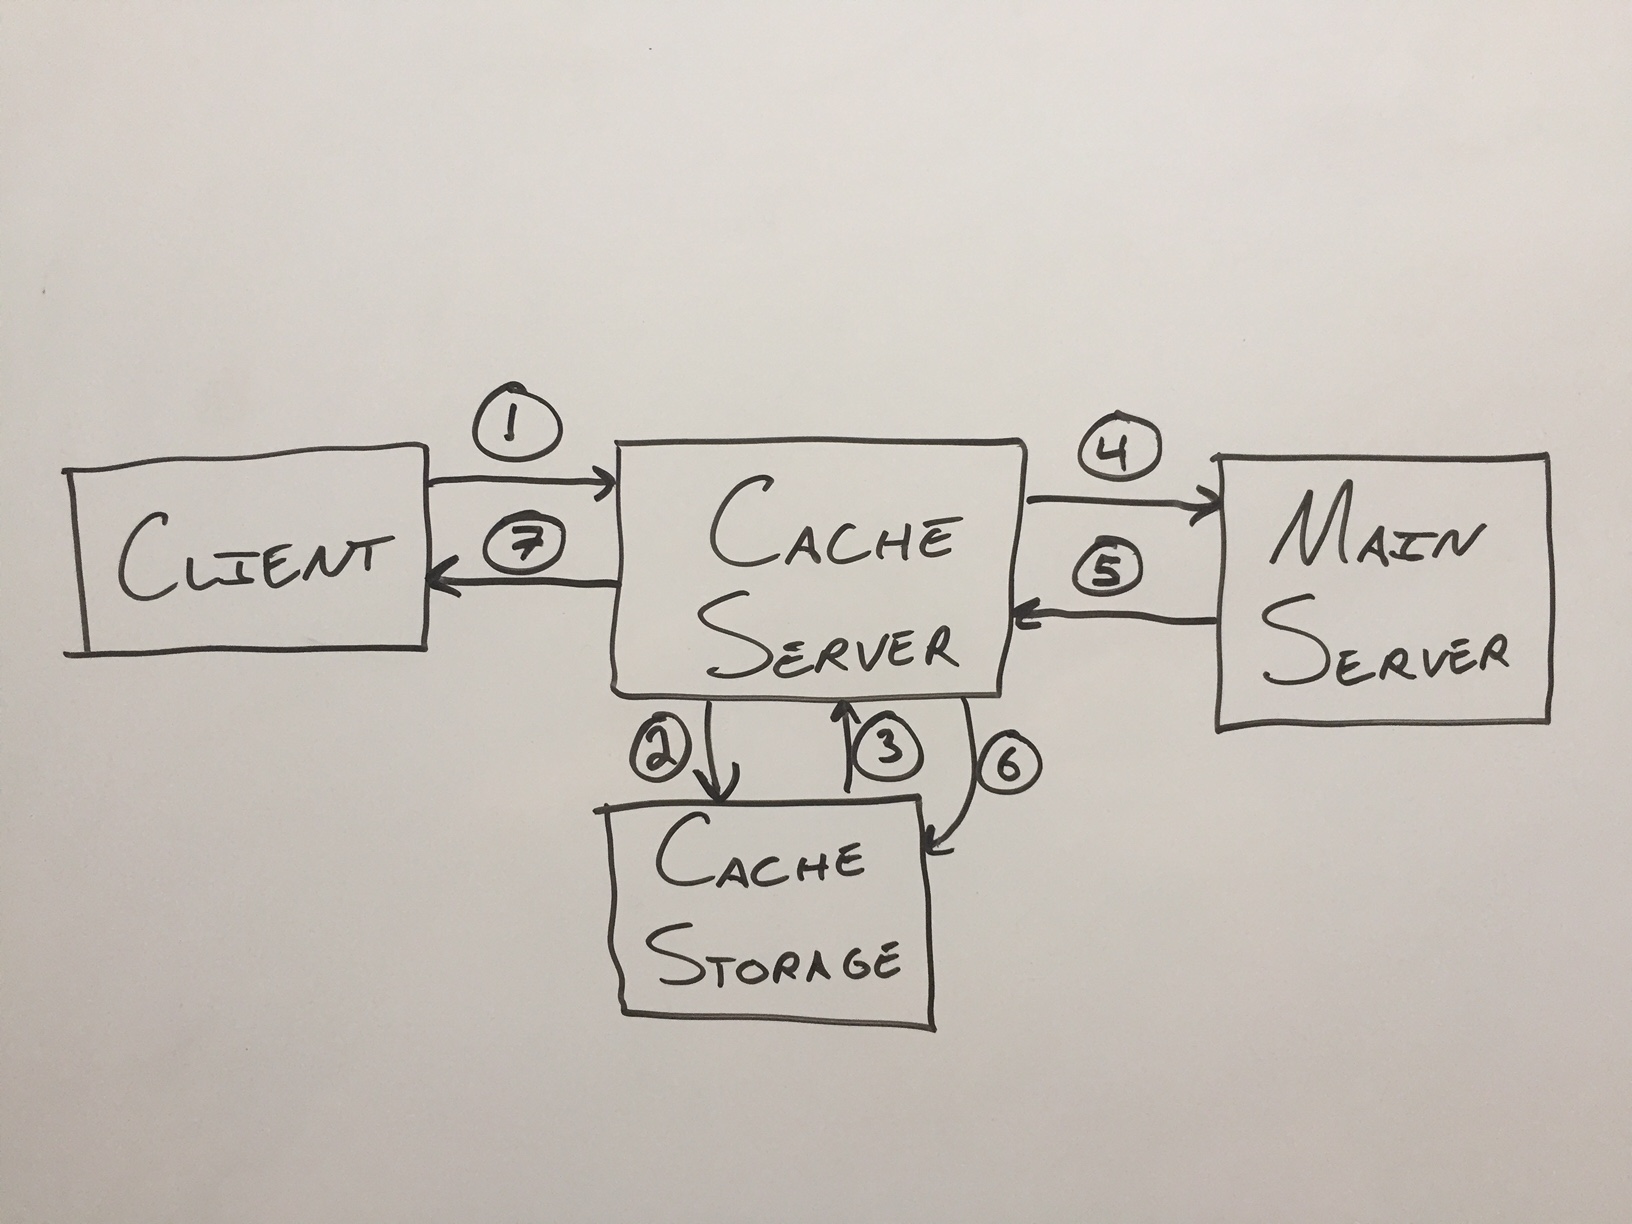 1
4
CLIENT
7
CACHE
SERVER
5
MAIN
SERVER
2
3
6
CACHE
STORAGE